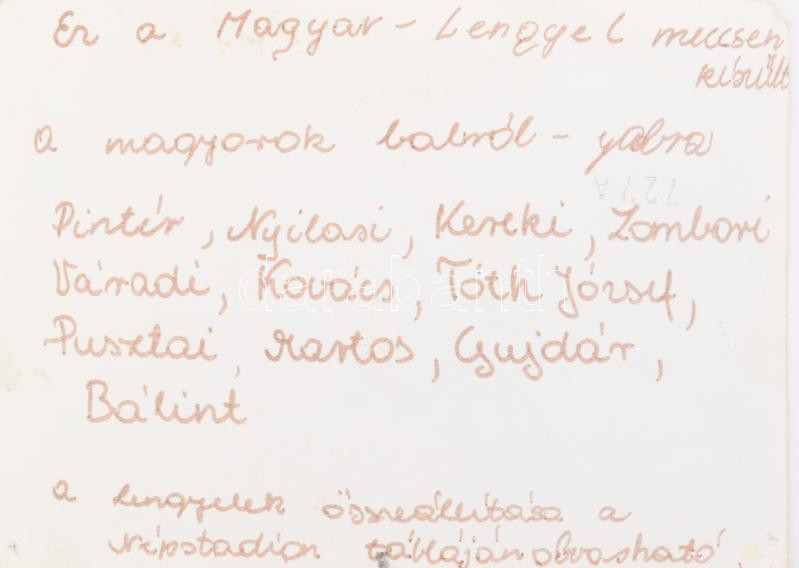 Ez a Magyar - Lengyel meccsen
készűlt
a magyarok balról - jobra
727A
Pintér, Nyilasi, Kereki, Zombori
Váradi, Kovács, Tóth József,
darabanth
Pusztai, Martos, Gujdár,
Bálint
a lengyelek összeállítása a
Népstadion tábláján olvasható